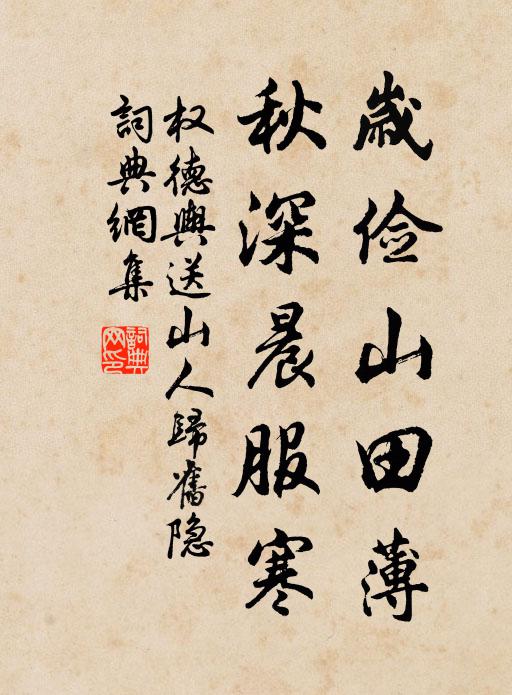 歲俭山田薄
秋深晨服寒
权德輿送山人歸舊隐
詞典網集
詞典网印